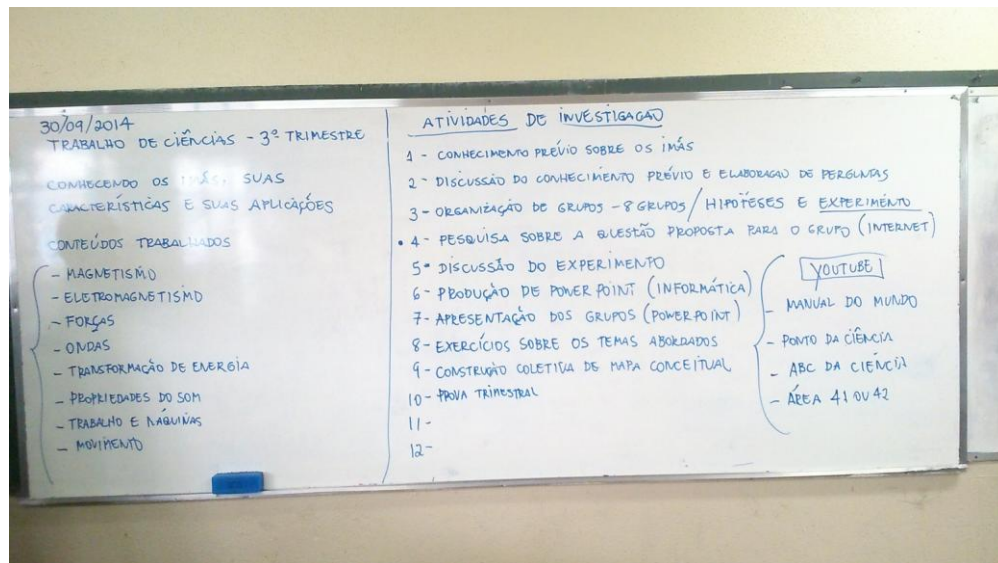 30/09/2014
TRABALHO DE CIÊNCIAS - 3º TRIMESTRE
CONHECENDO OS IMÃS, SUAS
CARACTERÍSTICAS E SUAS APLICAÇÕES
CONTEÚDOS TRABALHADOS
- MAGNETISMO
- ELETROMAGNETISMO
- FORÇAS
- ONDAS
- TRANSFORMAÇÃO DE ENERGIA
- PROPRIEDADES DO SOM
- TRABALHO E MÁQUINAS
- MOVIMENTO
ATIVIDADES DE INVESTIGAÇÃO
1 - CONHECIMENTO PRÉVIO SOBRE OS IMÃS
2 - DISCUSSÃO DO CONHECIMENTO PRÉVIO E ELABORAÇÃO DE PERGUNTAS
3 - ORGANIZAÇÃO DE GRUPOS - 8 GRUPOS / HIPÓTESES E EXPERIMENTO
• 4 - PESQUISA SOBRE A QUESTÃO PROPOSTA PARA O GRUPO (INTERNET)
5 - DISCUSSÃO DO EXPERIMENTO
6 - PRODUÇÃO DE POWER POINT (INFORMÁTICA)
7 - APRESENTAÇÃO DOS GRUPOS (POWERPOINT)
8 - EXERCÍCIOS SOBRE OS TEMAS ABORDADOS
9 - CONSTRUÇÃO COLETIVA DE MAPA CONCEITUAL
10 - PROVA TRIMESTRAL
11 -
12 -
YOUTUBE
- MANUAL DO MUNDO
- PONTO DA CIÊNCIA
- ABC DA CIÊNCIA
- ÁREA 41 OU 42